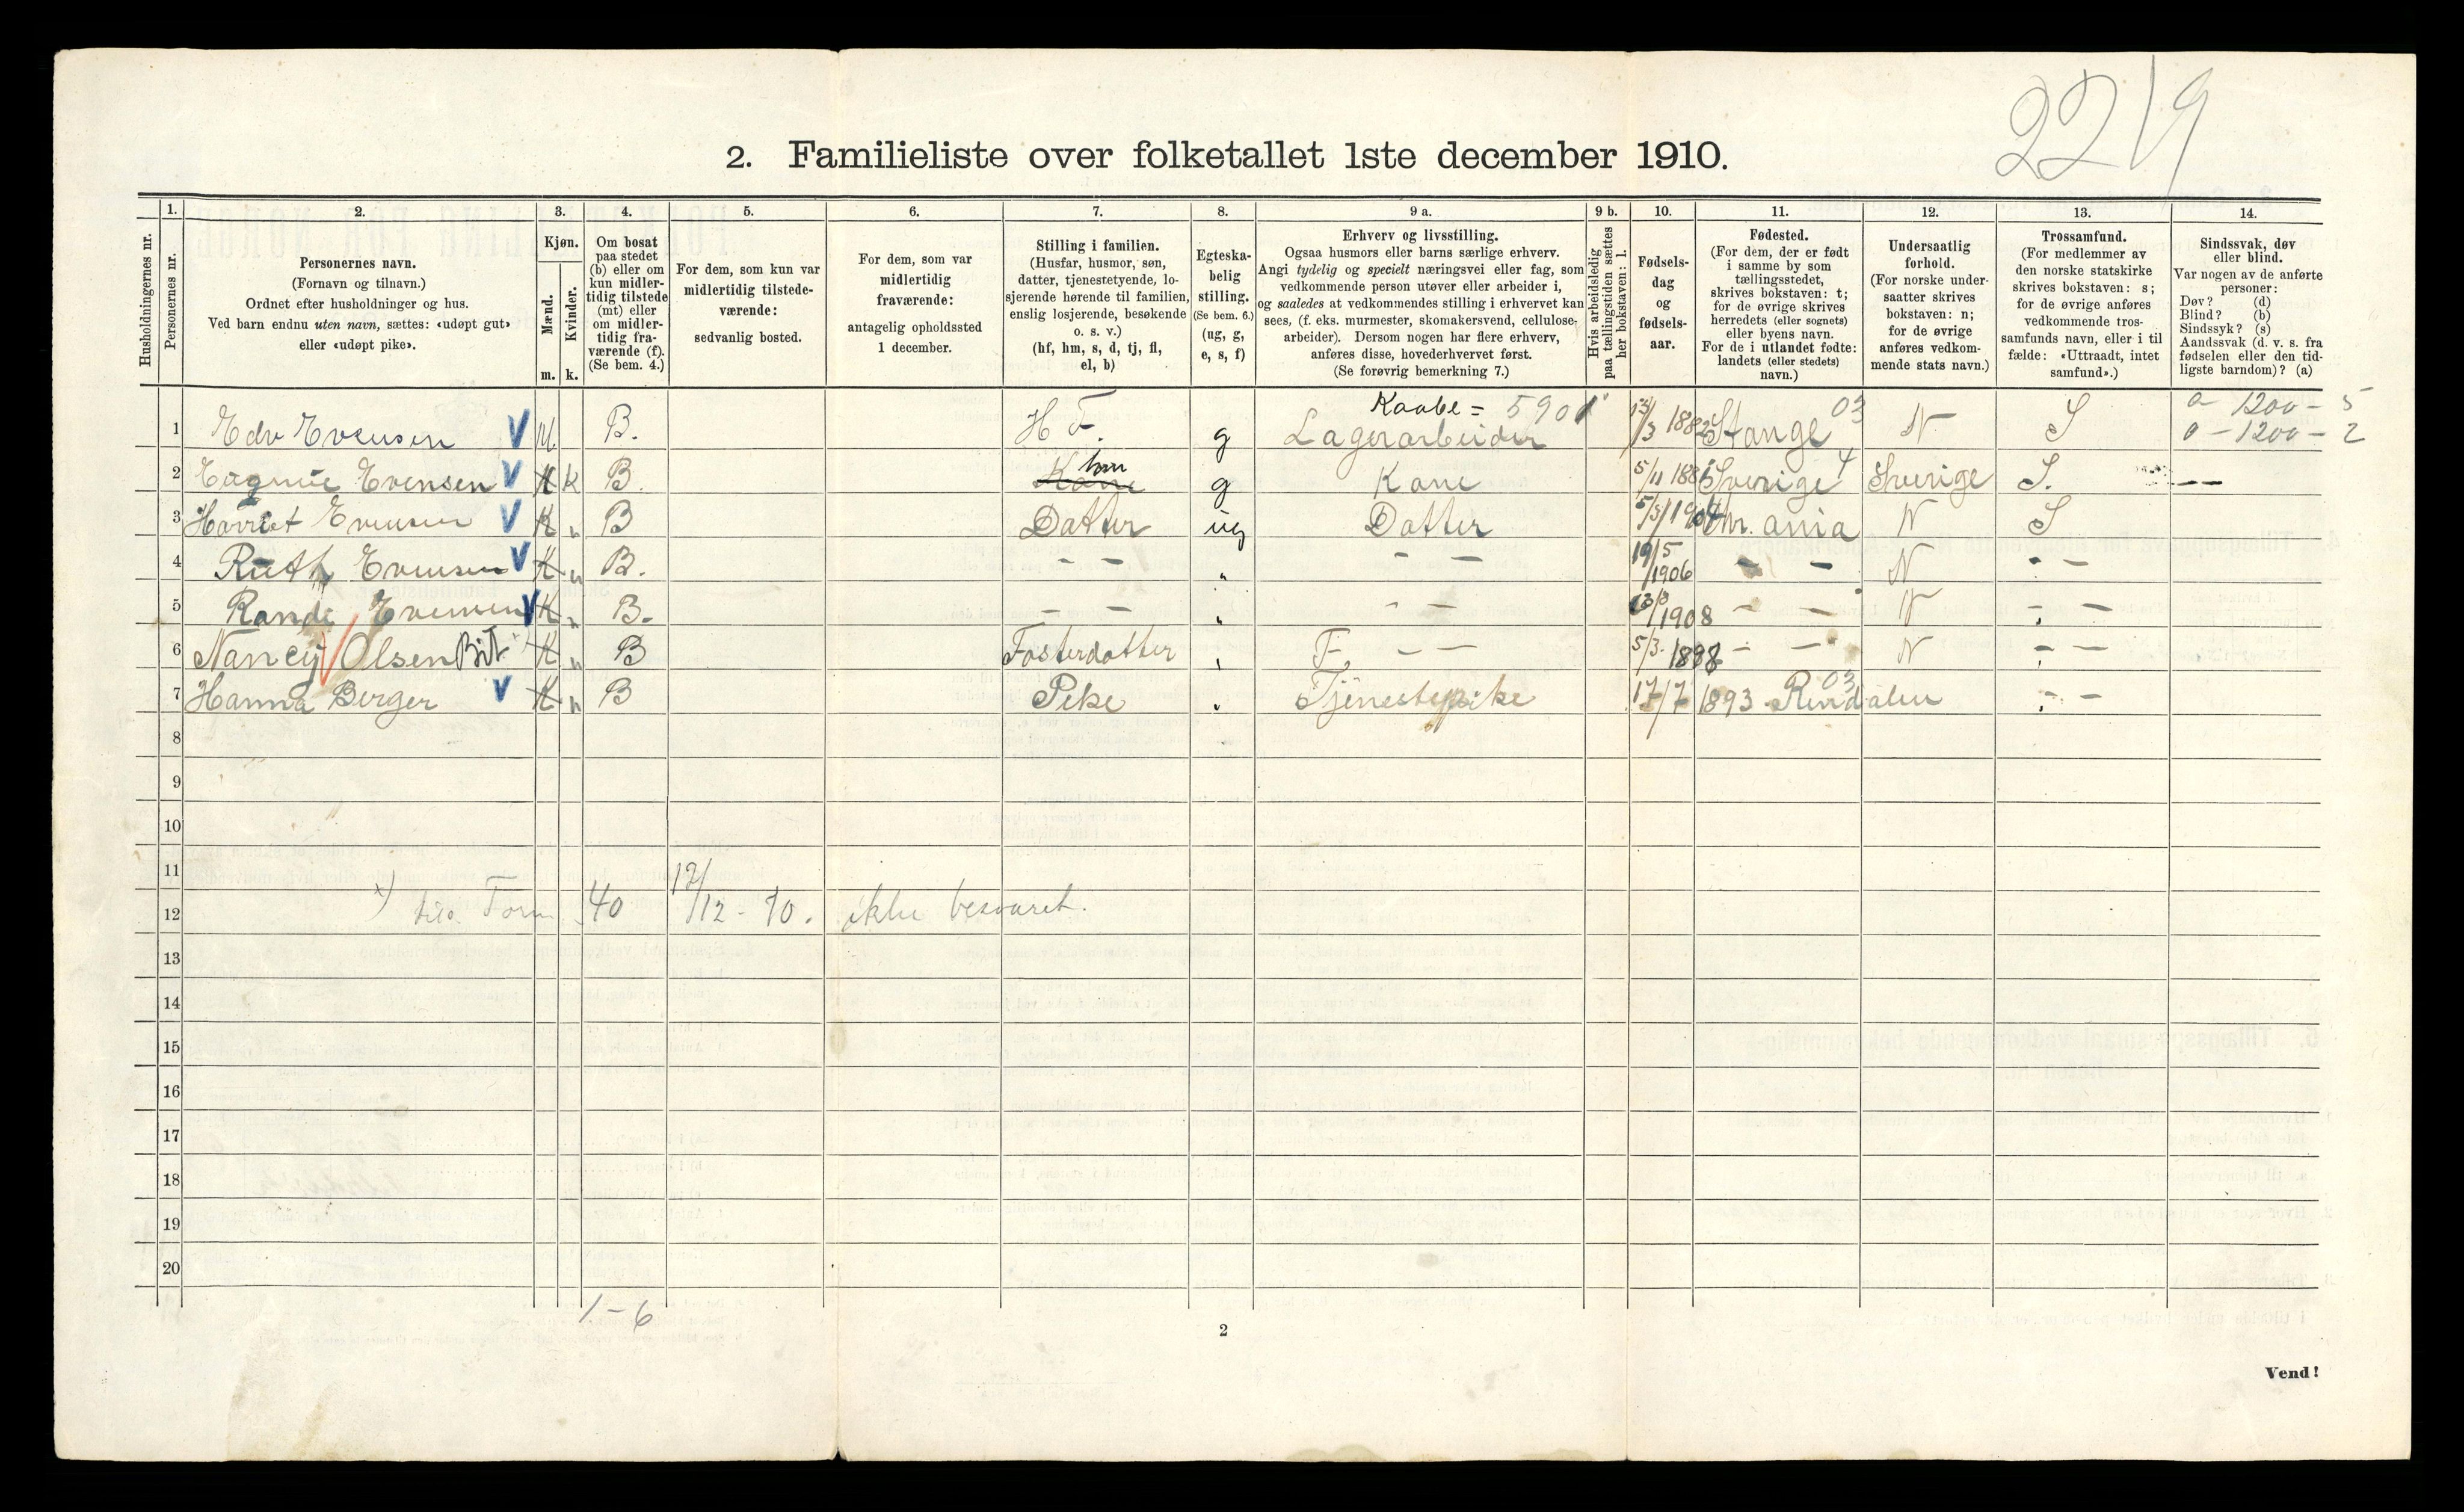 2219
2. Familieliste over folketallet 1ste december 1910.
Husholdningernes nr.
1.
Personernes nr.
2.
Personernes navn.
(Fornavn og tilnavn.)
Ordnet efter husholdninger og hus.
Ved barn endnu uten navn, sættes: «udøpt gut»
eller «udøpt pike».
3.
Kjøn.
Mænd.
Kvinder.
m. k.
4.
Om bosat
paa stedet
(b) eller om
kun midler-
tidig tilstede
(mt) eller
om midler-
tidig fra-
værende (f).
(Se bem. 4.)
5.
For dem, som kun var
midlertidig tilstede-
værende:
sedvanlig bosted.
6.
For dem, som var
midlertidig
fraværende:
antagelig opholdssted
1 december.
7.
Stilling i familien.
(Husfar, husmor, søn,
datter, tjenestetyende, lo-
sjerende hørende til familien,
enslig losjerende, besøkende
o. s. v.)
(hf, hm, s, d, tj, fl,
el, b)
8.
Egteska-
belig
stilling.
(Se bem. 6.)
(ug, g,
e, s, f)
9 a.
Erhverv og livsstilling.
Ogsaa husmors eller barns særlige erhverv.
Angi tydelig og specielt næringsvei eller fag, som
vedkommende person utøver eller arbeider i,
og saaledes at vedkommendes stilling i erhvervet kan
sees, (f. eks. murmester, skomakersvend, cellulose-
arbeider). Dersom nogen har flere erhverv,
anføres disse, hovederhvervet først.
(Se forøvrig bemerkning 7.)
9 b.
Hvis arbeidsledig
paa tællingstiden sættes
her bokstaven: l.
10.
Fødsels-
dag
og
fødsels-
aar.
11.
Fødested.
(For dem, der er født
i samme by som
tællingsstedet,
skrives bokstaven: t;
for de øvrige skrives
herredets (eller sognets)
eller byens navn.
For de i utlandet fødte:
landets (eller stedets)
navn.)
12.
Undersaatlig
forhold.
(For norske under-
saatter skrives
bokstaven: n;
for de øvrige
anføres vedkom-
mende stats navn.)
13.
Trossamfund.
(For medlemmer av
den norske statskirke
skrives bokstaven: s;
for de øvrige anføres
vedkommende tros-
samfunds navn, eller i til
fælde: «Uttraadt, intet
samfund».)
14.
Sindssvak, døv
eller blind.
Var nogen av de anførte
personer:
Døv? (d)
Blind? (b)
Sindssyk? (s)
Aandssvak (d. v. s. fra
fødselen eller den tid-
ligste barndom)? (a)
Kaabe = 5901 03 a - 1200 - 5
1 Edv Evensen V M. B. H F. g Lagerarbeider 13/3 1882 Stange N S o - 1200 - 2
2 Evensen V K k B. Kone hm g Kone 5/11 188 Sverige 4 Sverige S. - -
3 Harriet Evensen V K " B Datter ug Datter 5/5 1904 Kr. ania N S
4 Ruth Evensen V K " B. - - " - - 19/5 1906 - - N - -
5 Randi Evensen V K " B. - - " - - 13/8 1908 - - N - -
6 Nancy Olsen K " B Fosterdatter " F. - - 5/3 1898 - - N - -
7 Hanna Berger V K " B Pike " Tjenestepike 17/7 1893 03 Rindalen - -
8
9
10
11
12 x) Form 40 12/12 - 10. ikke besvaret.
13
14
15
16
17
18
19
20
1 - 6
2
Vend!